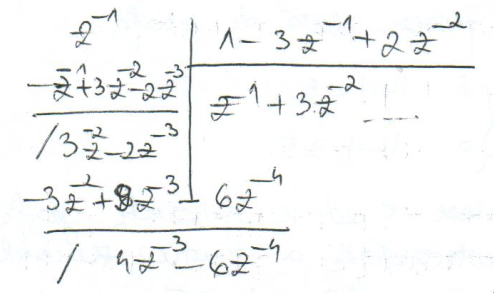 z⁻¹ | 1 - 3z⁻¹ + 2z⁻²
-z⁻¹ + 3z⁻² - 2z⁻³ | z⁻¹ + 3z⁻² ....
/ 3z⁻² - 2z⁻³
-3z⁻² + 9z⁻³ - 6z⁻⁴
/ 4z⁻³ - 6z⁻⁴